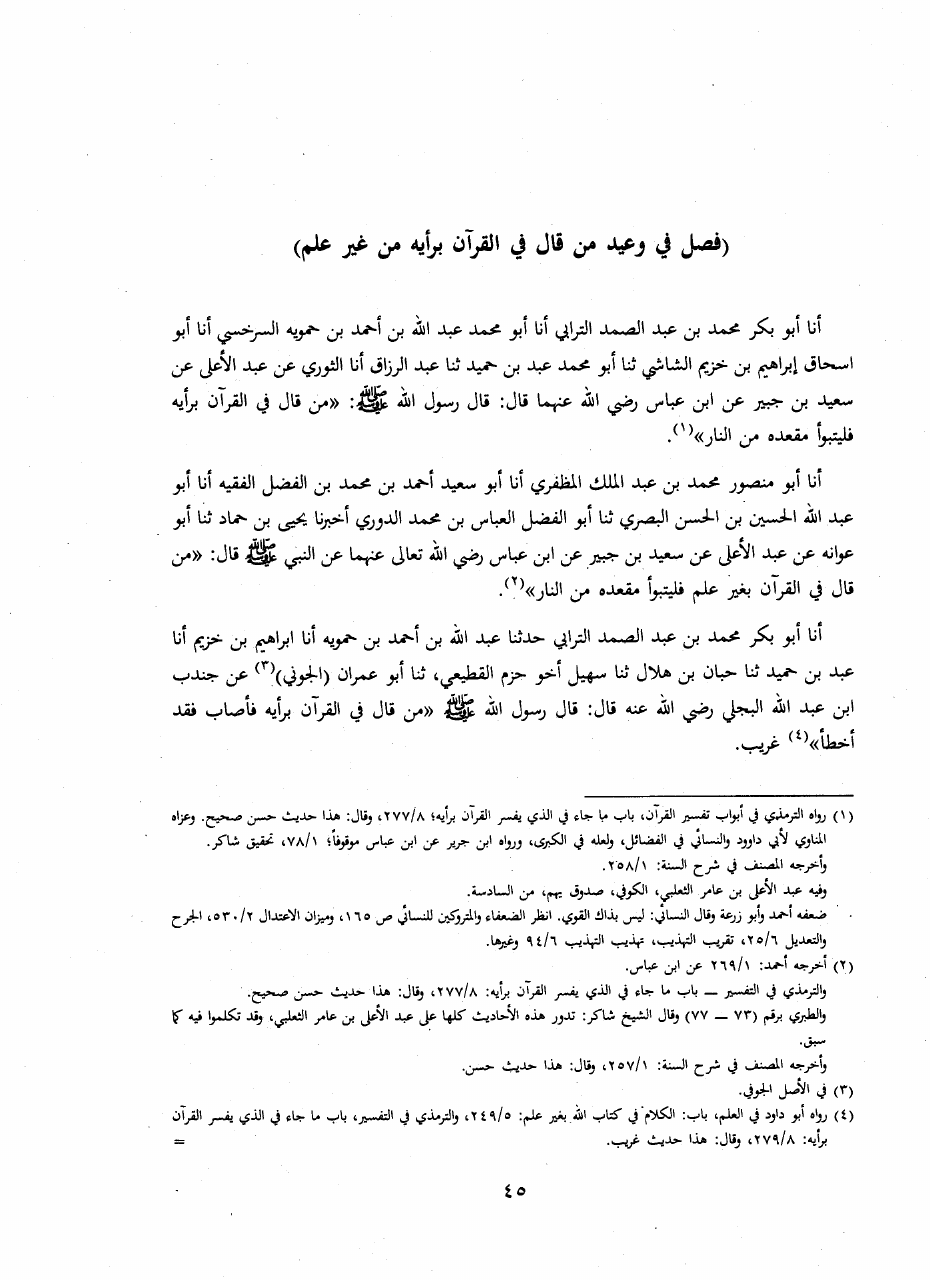 (فصل في وعيد من قال في القرآن برأيه من غير علم)
أنا أبو بكر محمد بن عبد الصمد الترابي أنا أبو محمد عبد الله بن أحمد بن حمويه السرخسي أنا أبو
اسحاق إبراهيم بن خزيم الشاشي ثنا أبو محمد عبد بن حميد ثنا عبد الرزاق أنا الثوري عن عبد الأعلى عن
سعيد بن جبير عن ابن عباس رضي الله عنهما قال: قال رسول الله ﷺ: «من قال في القرآن برأيه
فليتبوأ مقعده من النار»(١).
أنا أبو منصور محمد بن عبد الملك المظفري أنا أبو سعيد أحمد بن محمد بن الفضل الفقيه أنا أبو
عبد الله الحسين بن الحسن البصري ثنا أبو الفضل العباس بن محمد الدوري أخبرنا يحيى بن حماد ثنا أبو
عوانه عن عبد الأعلى عن سعيد بن جبير عن ابن عباس رضي الله تعالى عنهما عن النبي ﷺ قال: «من
قال في القرآن بغير علم فليتبوأ مقعده من النار»(٢).
أنا أبو بكر محمد بن عبد الصمد الترابي حدثنا عبد الله بن أحمد بن حمويه أنا ابراهيم بن خزيم أنا
عبد بن حميد ثنا حبان بن هلال ثنا سهيل أخو حزم القطيعي، ثنا أبو عمران (الجوني)(٣) عن جندب
ابن عبد الله البجلي رضي الله عنه قال: قال رسول الله ﷺ «من قال في القرآن برأيه فأصاب فقد
أخطأ»(٤) غريب.
(١) رواه الترمذي في أبواب تفسير القرآن، باب ما جاء في الذي يفسر القرآن برأيه؛ ٢٧٧/٨، وقال: هذا حديث حسن صحيح. وعزاه
المناوي لأبي داوود والنسائي في الفضائل، ولعله في الكبرى، ورواه ابن جرير عن ابن عباس موقوفاً؛ ٧٨/١، تحقيق شاكر.
وأخرجه المصنف في شرح السنة: ٢٥٨/١.
وفيه عبد الأعلى بن عامر الثعلبي، الكوفي، صدوق يهم، من السادسة.
ضعفه أحمد وأبو زرعة وقال النسائي: ليس بذاك القوي. انظر الضعفاء والمتروكين للنسائي ص ١٦٥، وميزان الاعتدال ٥٣٠/٢، الجرح
والتعديل ٢٥/٦، تقريب التهذيب، تهذيب التهذيب ٩٤/٦ وغيرها.
(٢) أخرجه أحمد: ٢٦٩/١ عن ابن عباس.
والترمذي في التفسير — باب ما جاء في الذي يفسر القرآن برأيه: ٢٧٧/٨، وقال: هذا حديث حسن صحيح.
والطبري برقم (٧٣ — ٧٧) وقال الشيخ شاكر: تدور هذه الأحاديث كلها على عبد الأعلى بن عامر الثعلبي، وقد تكلموا فيه كما
سبق.
وأخرجه المصنف في شرح السنة: ٢٥٧/١، وقال: هذا حديث حسن.
(٣) في الأصل الجوفي.
(٤) رواه أبو داود في العلم، باب: الكلام في كتاب الله بغير علم: ٢٤٩/٥، والترمذي في التفسير، باب ما جاء في الذي يفسر القرآن
برأيه: ٢٧٩/٨، وقال: هذا حديث غريب. =
٤٥